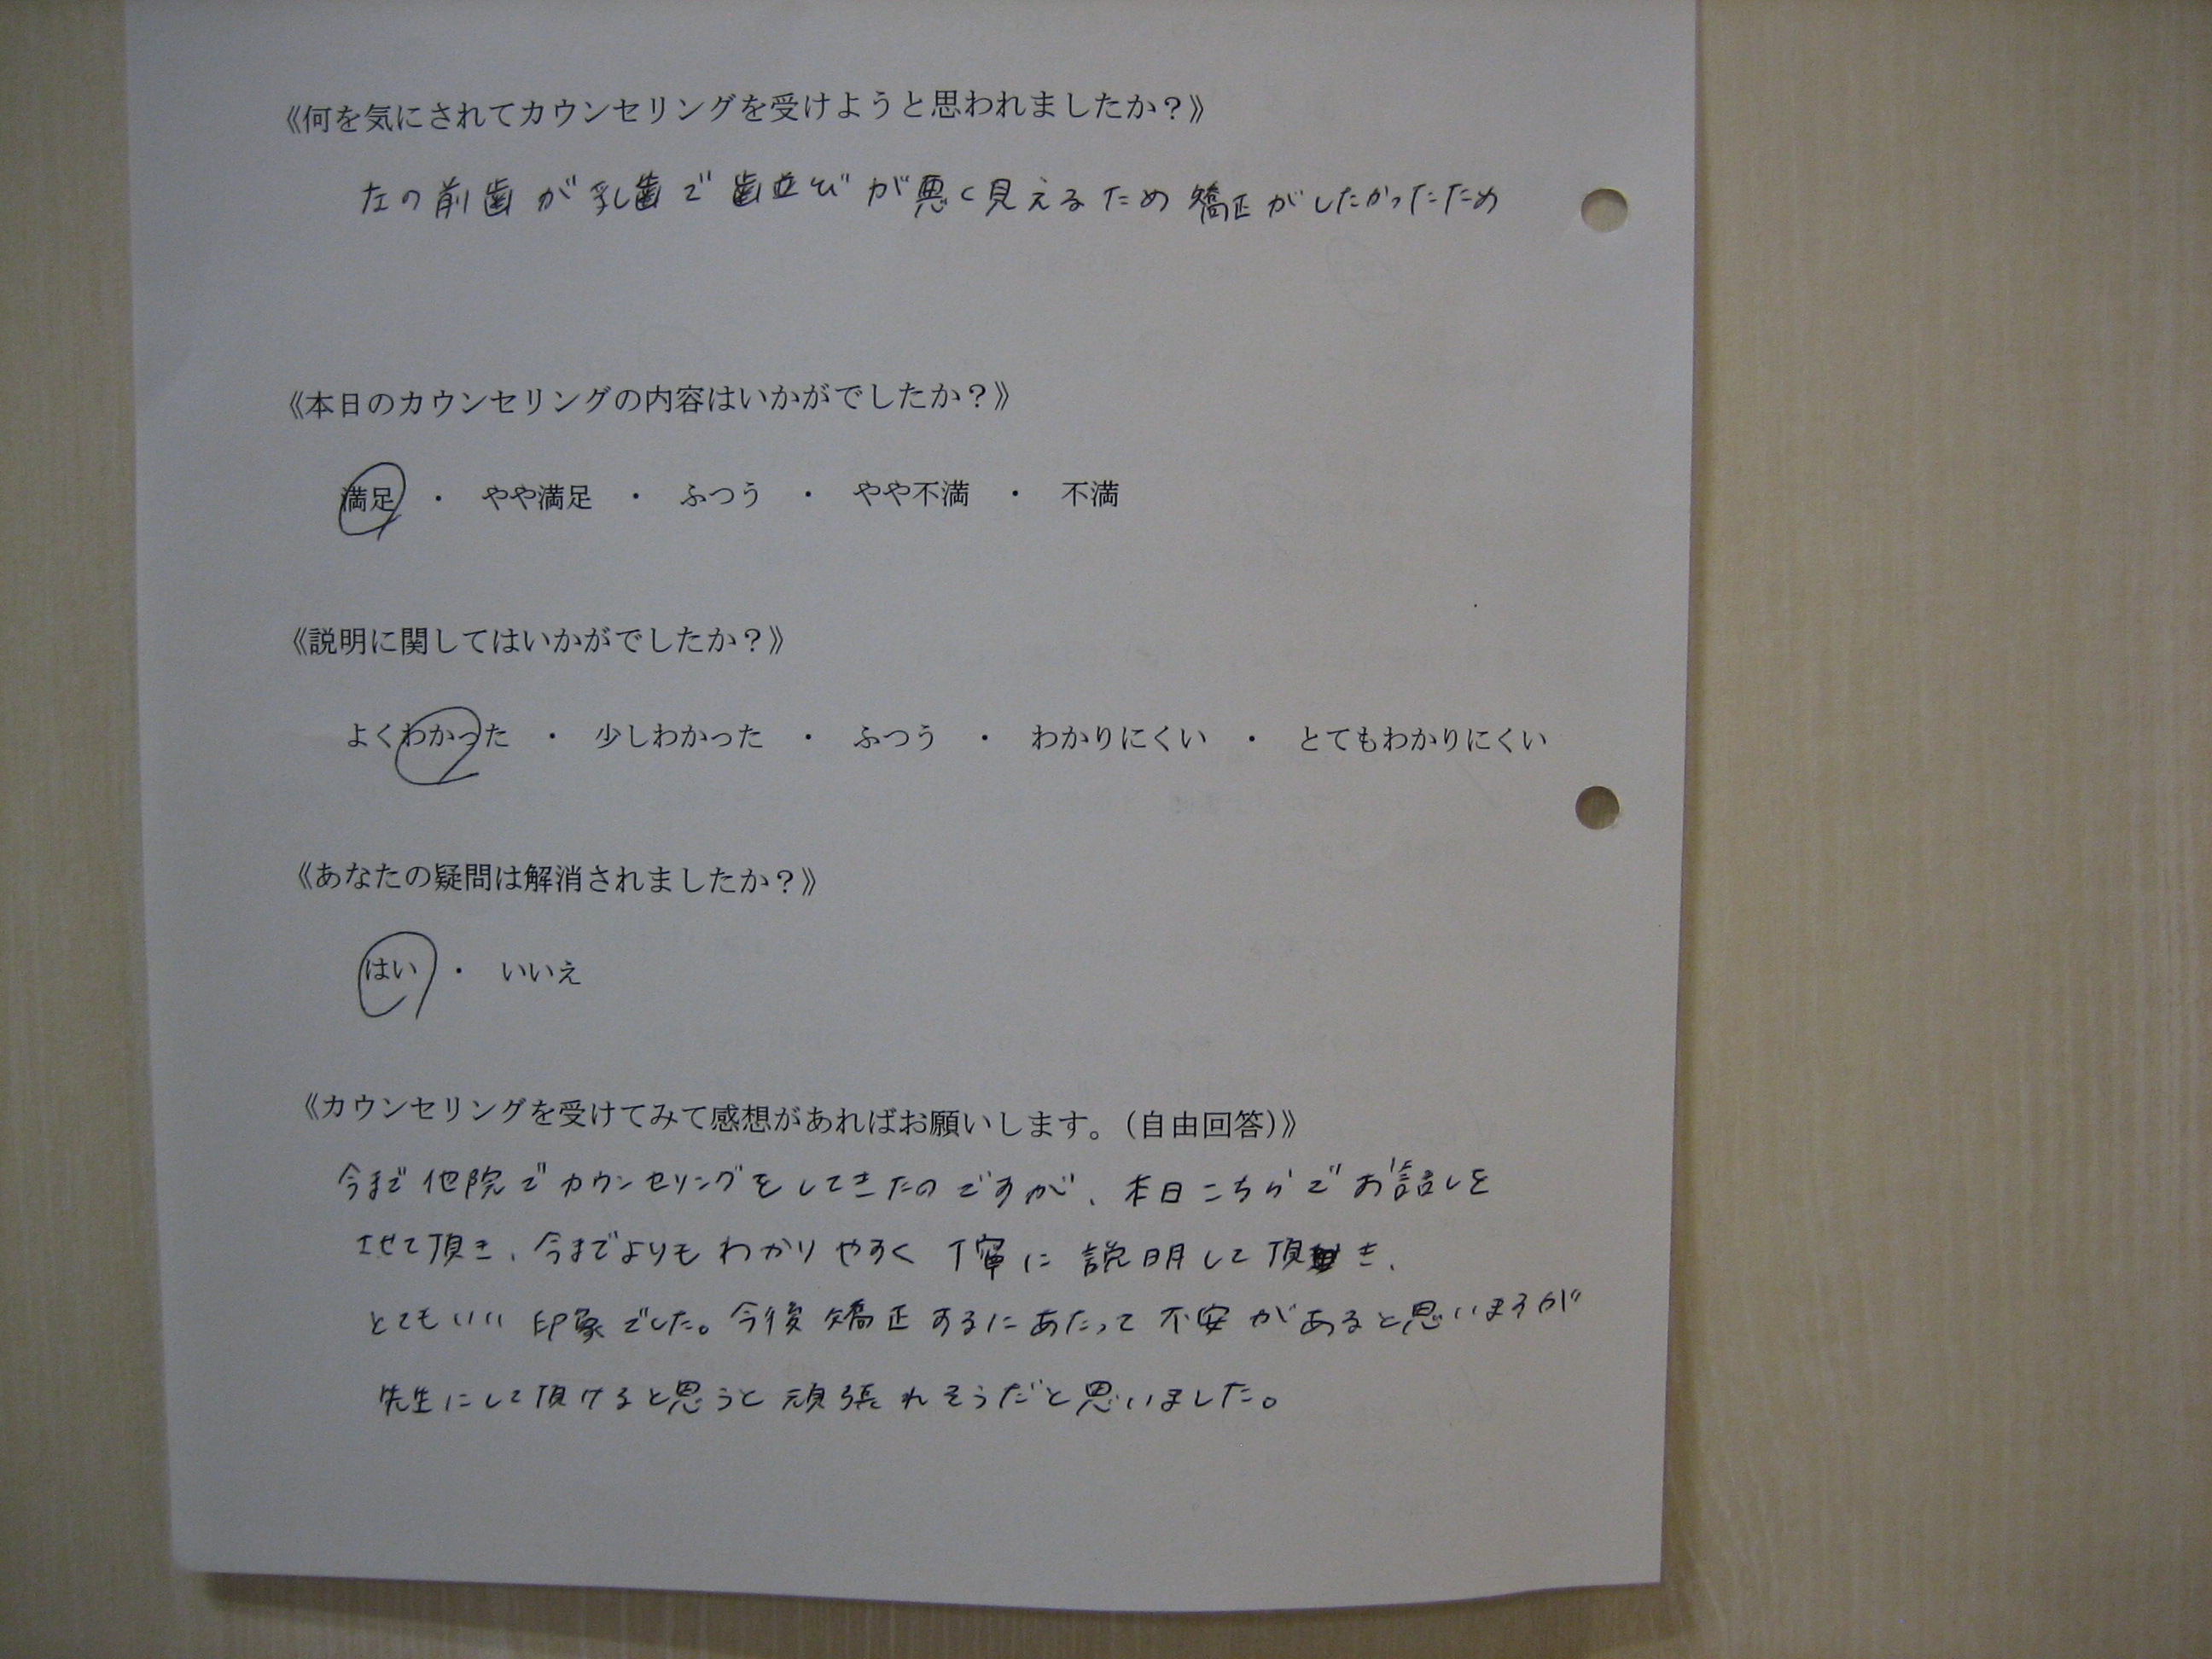 《何を気にされてカウンセリングを受けようと思われましたか？》
左の前歯が乳歯で歯並びが悪く見えるため矯正がしたかったため
《本日のカウンセリングの内容はいかがでしたか？》
満足　・　やや満足　・　ふつう　・　やや不満　・　不満
《説明に関してはいかがでしたか？》
よくわかった　・　少しわかった　・　ふつう　・　わかりにくい　・　とてもわかりにくい
《あなたの疑問は解消されましたか？》
はい　・　いいえ
《カウンセリングを受けてみて感想があればお願いします。（自由回答）》
今まで他院でカウンセリングをしてきたのですが、本日こちらでお話しを
させて頂き、今までよりもわかりやすく丁寧に説明して頂き、
とてもいい印象でした。今後矯正するにあたって不安があると思いますが
先生にして頂けると思うと頑張れそうだと思いました。